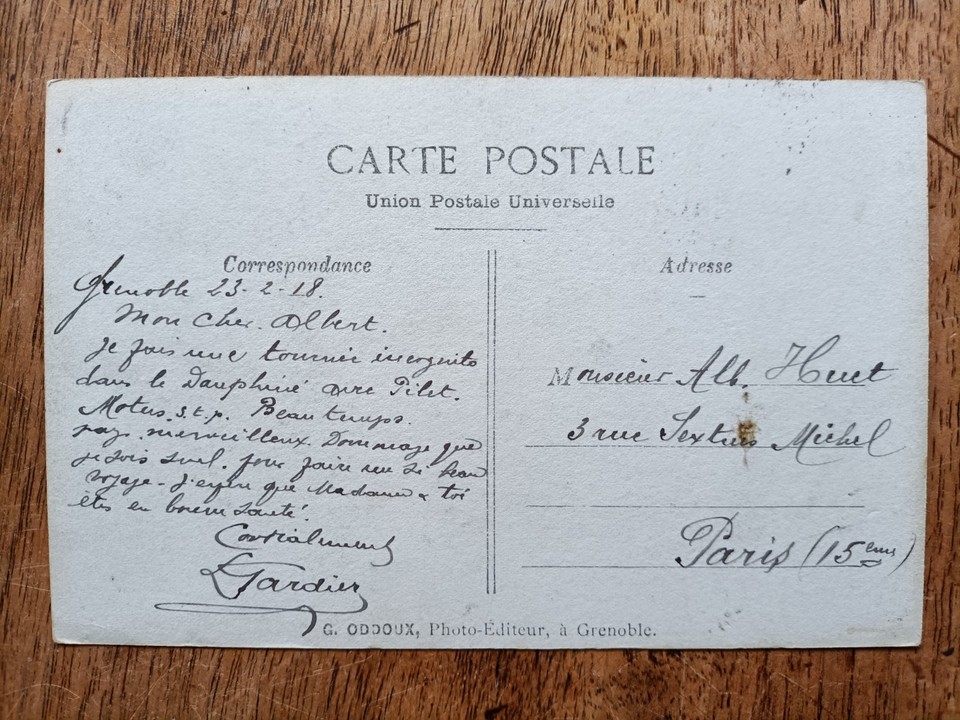 CARTE POSTALE
Union Postale Universelle
Correspondance
Grenoble 23-2-18.
Mon cher Albert.
Je fais une tournée incognito
dans le Dauphiné avec Pilet.
Motus. s.t.p. Beau temps.
pays merveilleux. Dommage que
je sois seul. pour faire un si beau
voyage - J'espère que Madame & toi
êtes en bonne santé.
Cordialement
Tardier
Adresse
Monsieur Alb. Huet
3 rue Sextius Michel
Paris (15eme)
G. ODDOUX, Photo-Éditeur, à Grenoble.